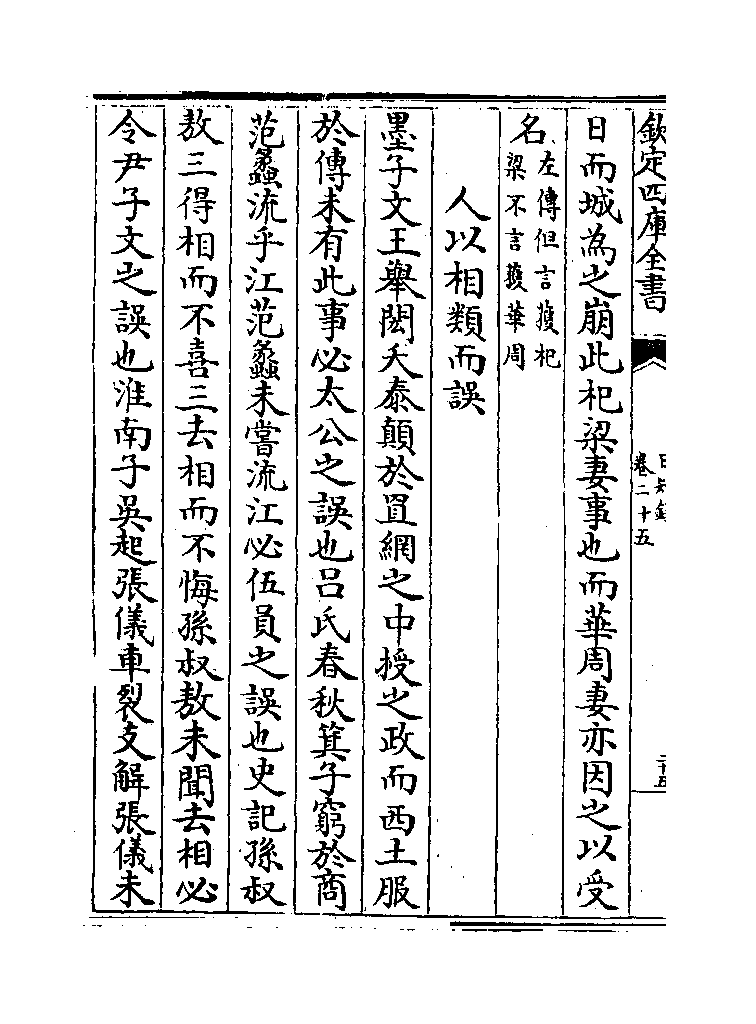 欽定四庫全書
卷二十五
日而城為之崩此杞梁妻事也而華周妻亦因之以受
名左傳但言獲杞
梁不言獲華周
人以相類而誤
墨子文王舉閎夭泰顛於罝網之中授之政而西土服
於傳未有此事必太公之誤也呂氏春秋箕子窮於商
范蠡流乎江范蠡未嘗流江必伍員之誤也史記孫叔
敖三得相而不喜三去相而不悔孫叔敖未聞去相必
令尹子文之誤也淮南子吳起張儀車裂支解張儀未